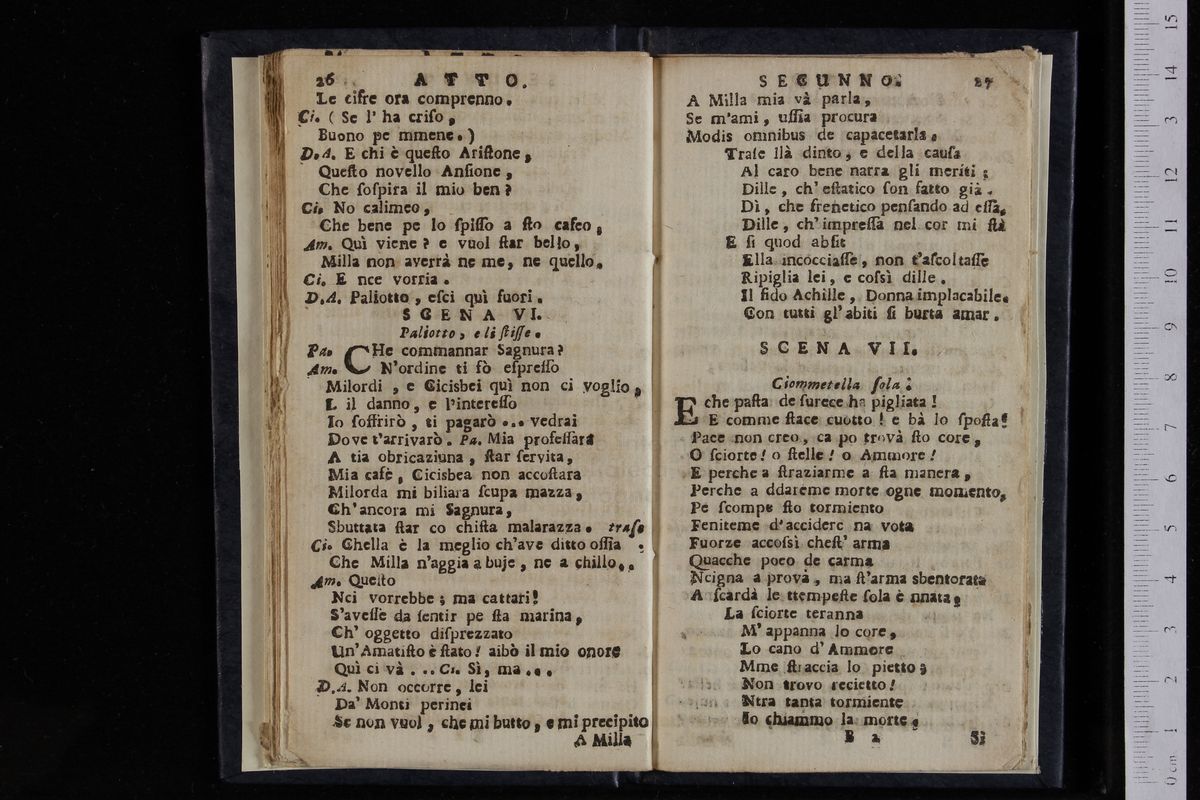 26 ATTO.
Le cifre ora comprenno.
Ci. ( Se l' ha criſo,
Buono pe mmene. )
D.A. E chi è queſto Ariſtone,
Queſto novello Anſione,
Che ſoſpira il mio ben?
Ci. No calimeo,
Che bene pe lo ſpiſſo a ſto caſeo,
Am. Quì viene? e vuol ſtar bello,
Milla non averrà ne me, ne quello.
Ci. E nce vorria.
D.A. Paliotto, eſci quì fuori.
SCENA VI.
Paliotto, e li ſtiſſe.
Pa. CHe commannar Sagnura?
Am. N'ordine ti fò eſpreſſo
Milordi, e Cicisbei quì non ci voglio,
E il danno, e l'intereſſo
Io ſoffrirò, ti pagarò ... vedrai
Dove t'arrivarò. Pa. Mia profeſſara
A tia obricaziuna, ſtar ſervita,
Mia caſè, Cicisbea non accoſtara
Milorda mi biliara ſcupa mazza,
Ch'ancora mi Sagnura,
Sbuttata ſtar co chiſta malarazza. traſe
Ci. Chella è la meglio ch'ave ditto oſſia
Che Milla n'aggia a buje, ne a chillo..
Am. Queſto
Nci vorrebbe; ma cattari!
S'aveſſe da ſentir pe ſta marina,
Ch' oggetto diſprezzato
Un'Amatiſto è ſtato! aibò il mio onore
Quì ci và ... Ci. Sì, ma ...
D.A. Non occorre, lei
Da' Monti perinei
Se non vuol, che mi butto, e mi precipito
A Milla
SECUNNO. 27
A Milla mia và parla,
Se m'ami, uſſia procura
Modis omnibus de capacetarla.
Traſe llà dinto, e della cauſa
Al caro bene narra gli meriti;
Dille, ch' eſtatico ſon fatto già.
Dì, che frenetico penſando ad eſſa,
Dille, ch'impreſſa nel cor mi ſtà
E ſi quod abſit
Ella incocciaſſe, non t'aſcoltaſſe
Ripiglia lei, e coſsì dille.
Il fido Achille, Donna implacabile.
Con tutti gl'abiti ſi burta amar.
SCENA VII.
Ciommetella ſola.
E che paſta de ſurece ha pigliata!
E comme ſtace cuotto! e bà lo ſpoſta!
Pace non creo, ca po trovà ſto core,
O ſciorte! o ſtelle! o Ammore!
E perche a ſtraziarme a ſta manera,
Perche a ddareme morte ogne momento,
Pe ſcompe ſto tormiento
Feniteme d'accidere na vota
Fuorze accoſsì cheſt' arma
Quacche poco de carma
Ncigna a provà, ma ſt'arma sbentorata
A ſcardà le ttempeſte ſola è nnata,
La ſciorte teranna
M' appanna lo core,
Lo cano d' Ammore
Mme ſtraccia lo pietto;
Non trovo recietto!
Ntra tanta tormiente
Io chiammo la morte,
B 2 Si